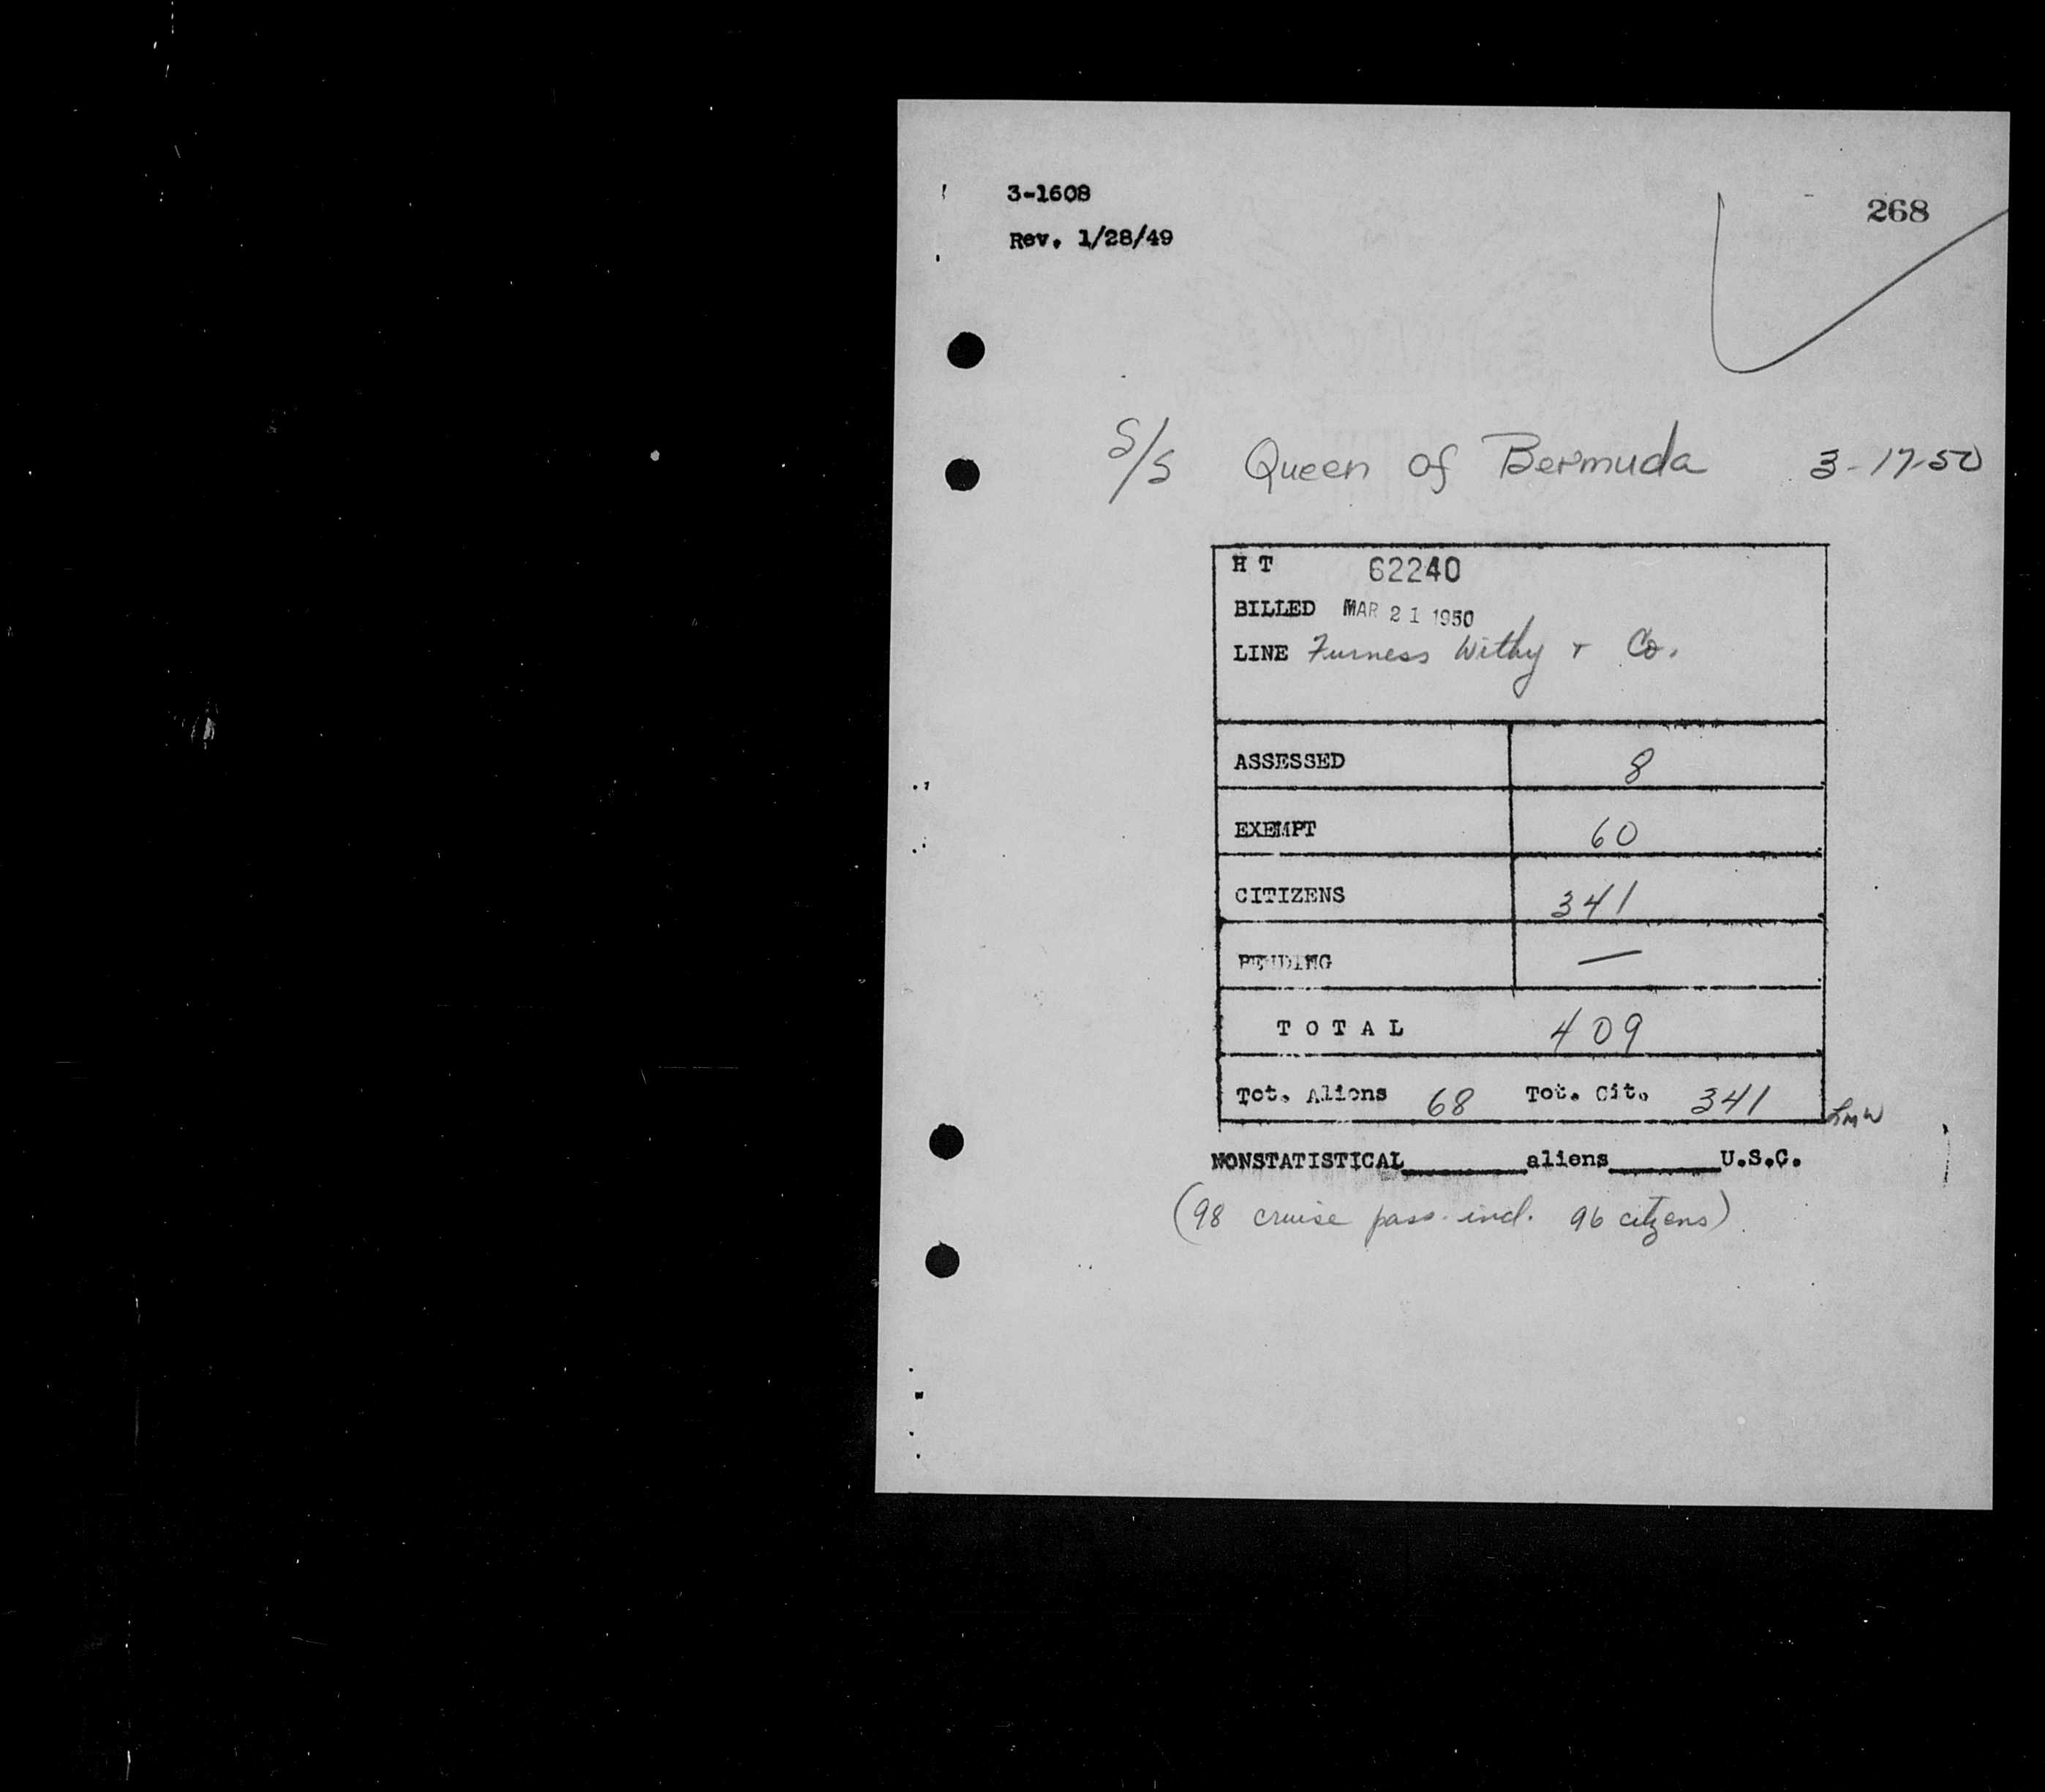 3-1608
268
Rev. 1/28/49
S/S Queen of Bermuda 3-17-50
H T 62240
BILLED MAR 21 1950
LINE Furness Withy & Co.
ASSESSED 8
EXEMPT 60
CITIZENS 341
PENDING —
T O T A L 409
Tot. Aliens 68 Tot. Cit. 341
LMW
NONSTATISTICAL________aliens_______U.S.C.
(98 cruise pass. incl. 96 citzens)